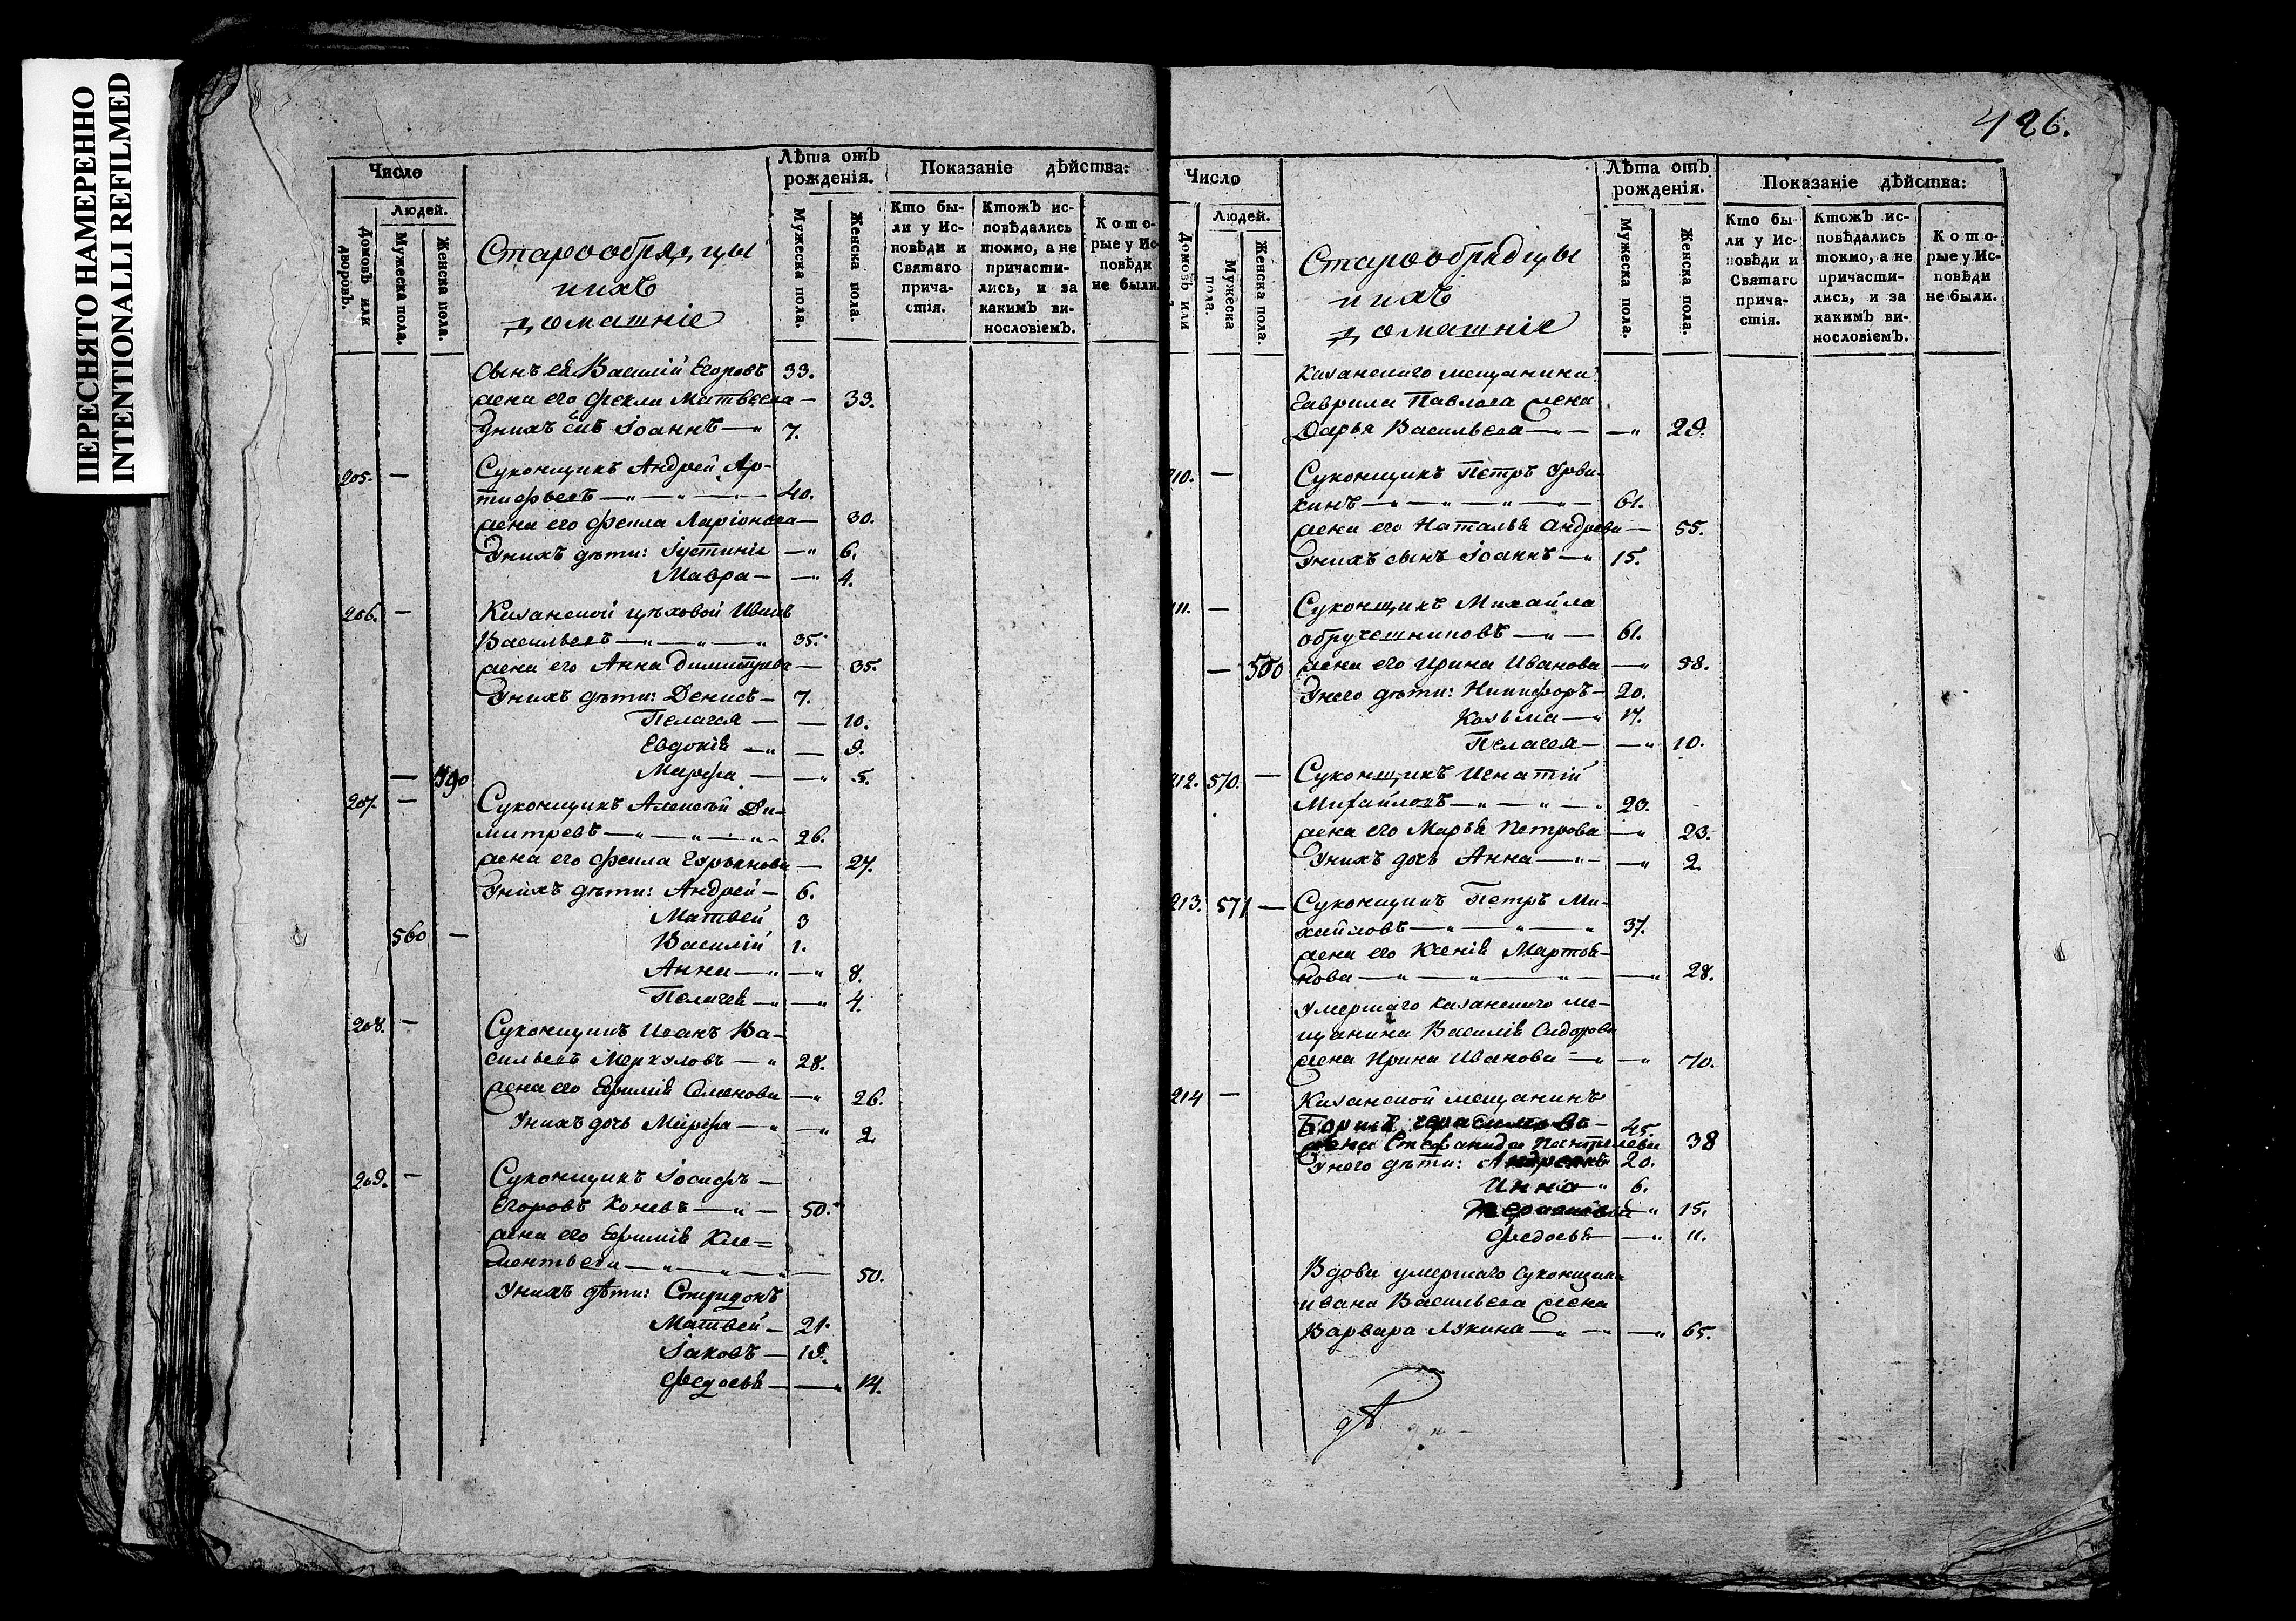 ПЕРЕСНЯТО НАМЕРЕННО
INTENTIONALLI REFILMED
Число
Людей.
Домовъ или дворовъ.
Мужеска пола.
Женска пола.
Старообрядцы
и ихъ
домашніе
Лѣта отъ
рожденія.
Мужеска пола.
Женска пола.
Показаніе дѣйства:
Кто бы-
ли у Ис-
повѣди и
Святаго
прича-
стія.
Ктожъ ис-
повѣдались
токмо, а не
причасти-
лись, и за
какимъ ви-
нословіемъ.
Кото-
рые у Ис-
повѣди
не были.
Сынъ ея Василій Егоровъ 33.
жена его Фекла Матвеева — 33.
У нихъ сы͠ъ Іоаннъ — 7.
205. — Суконщикъ Андрей Ар-
тифьевъ — 40.
жена его Фекла Ларіонова — 30.
У нихъ дѣти: Іустинія — 6.
Мавра — 4.
206. — Казанской цѣховой Иванъ
Васильевъ — 35.
жена его Анна Димитрева — 35.
У нихъ дѣти: Денисъ — 7.
Пелагея — 10.
Евдокія — 9.
Марфа — 5.
— 790
207. — Суконщикъ Алексѣй Ди-
митревъ — 26.
жена его Фекла — 27.
У нихъ дѣти: Андрей — 6.
Матвей 3
560 — Василій 1.
Анна — 8.
Пелагея — 4.
208. — Суконщикъ Иванъ Ва-
сильевъ Меркуловъ — 28.
жена его Ефимія Семенова — 26.
У нихъ дочь Марфа — 2
209. — Суконщикъ Іосифъ —
Егоровъ Коневъ — 50.
жена его Ефимія Кле=
ментьева — 50.
У нихъ дѣти: Спиридонъ
Матвей — 21.
Іаковъ — 19.
Федосья — 14.
426.
Число
Людей.
Домовъ или
Мужеска пола.
Женска пола.
Старообрядцы
и ихъ
домашніе
Лѣта отъ
рожденія.
Мужеска пола.
Женска пола.
Показаніе дѣйства:
Кто бы-
ли у Ис-
повѣди и
Святаго
прича-
стія.
Ктожъ ис-
повѣдались
токмо, а не
причасти-
лись, и за
какимъ ви-
нословіемъ.
Кото-
рые у Ис-
повѣди
не были.
Казанскаго мещанина
Гаврила Павлова жена
Дарья Васильева — 29.
10. — Суконщикъ Петръ
кинъ — 61.
жена его Наталья Андреева — 55.
У нихъ сынъ Іоаннъ — 15.
11. — Суконщикъ Михайла
обручешниковъ — 61.
— жена его Ирина Иванова — 58.
У него дѣти: Никифоръ — 20.
Козьма — 17.
Пелагея — 10.
212. 570. — Суконщикъ Игнатій
Михайловъ — 23.
жена его Марья Петрова — 23.
У нихъ дочь Анна — 2
213. 571 — Суконщикъ Петръ Ми-
хайловъ — 37.
жена его Ксенія Мартья-
нова — 28.
Умершаго Казанскаго ме-
щанина Василія Сидорова
жена Ирина Иванова — 70.
214 — Казанской мещанинъ
Борисъ Герасимовъ — 45.
жена Стефанида Пантелеева 38
У него дѣти: 20.
6.
15.
Федосья — 11.
Вдова умершаго Суконщика
Ивана Васильева жена
Варвара Лукина — 65.